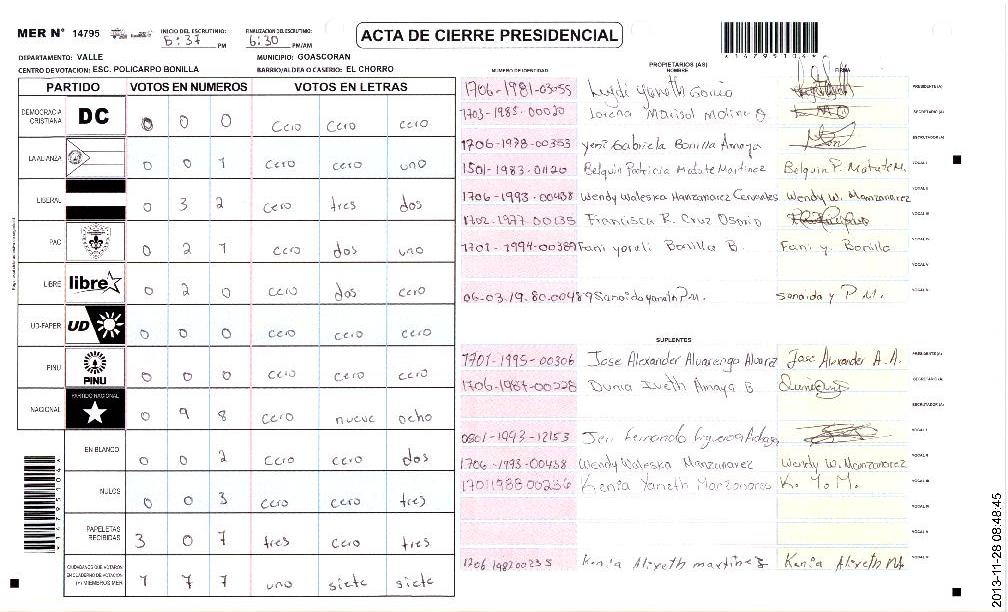 MER N° 14795
INICIO DEL ESCRUTINIO:
5:37 PM
FINALIZACION DEL ESCRUTINIO:
6:30 PM/AM
ACTA DE CIERRE PRESIDENCIAL
*14795104*
DEPARTAMENTO: VALLE
MUNICIPIO: GOASCORAN
CENTRO DE VOTACION: ESC. POLICARPO BONILLA
BARRIO/ALDEA O CASERIO: EL CHORRO
PARTIDO VOTOS EN NUMEROS VOTOS EN LETRAS
DEMOCRACIA CRISTIANA DC 0 0 0 cero cero cero
LA ALIANZA 0 0 1 cero cero uno
LIBERAL 0 3 2 cero tres dos
PAC 0 2 1 cero dos uno
LIBRE libre 0 2 0 cero dos cero
UD-FAPER UD 0 0 0 cero cero cero
PINU PINU 0 0 0 cero cero cero
NACIONAL PARTIDO NACIONAL 0 9 8 cero nueve ocho
EN BLANCO 0 0 2 cero cero dos
NULOS 0 0 3 cero cero tres
PAPELETAS RECIBIDAS 3 0 7 tres cero tres
CIUDADANOS QUE VOTARON EN CUADERNO DE VOTACION (+) MIEMBROS MER 1 7 7 uno siete siete
*14795104*
PROPIETARIOS (AS)
NUMERO DE IDENTIDAD NOMBRE FIRMA
1706-1981-03055 PRESIDENTE (A)
1703-1985-00020 Lorena Marisol Molina O SECRETARIO (A)
1706-1978-00353 yeni Gabriela Bonilla Amaya ESCRUTADOR (A)
1501-1983-01120 Belquin Patricia Matute Martinez Belquin P. Matute M. VOCAL I
1706-1993-00438 Wendy Waleska Manzanarez Cervantes Wendy W. Manzanarez VOCAL II
1702-1977-00135 Francisca R. Cruz Osorio VOCAL III
1701-1994-00389 Fani yoreli Bonilla B. Fani y. Bonilla VOCAL IV
VOCAL V
06-03.19.80.00489 sanaida y P.M. VOCAL VI
SUPLENTES
1701-1995-00306 Jose Alexander Alvarenga Alvarez Jose Alexander A.A. PRESIDENTE (A)
1706-1987-00228 Dunia Iveth Amaya B SECRETARIO (A)
ESCRUTADOR (A)
0801-1993-12153 Fernando VOCAL I
1706-1993-00438 Wendy Waleska Manzanarez Wendy W. Manzanarez VOCAL II
1701198800236 Kenia Yaneth Manzanares K. Y. M. VOCAL III
VOCAL IV
VOCAL V
1706 198200235 Kenia Alizeth martinez Kenia Alizeth VOCAL VI
2013-11-28 08:48:45